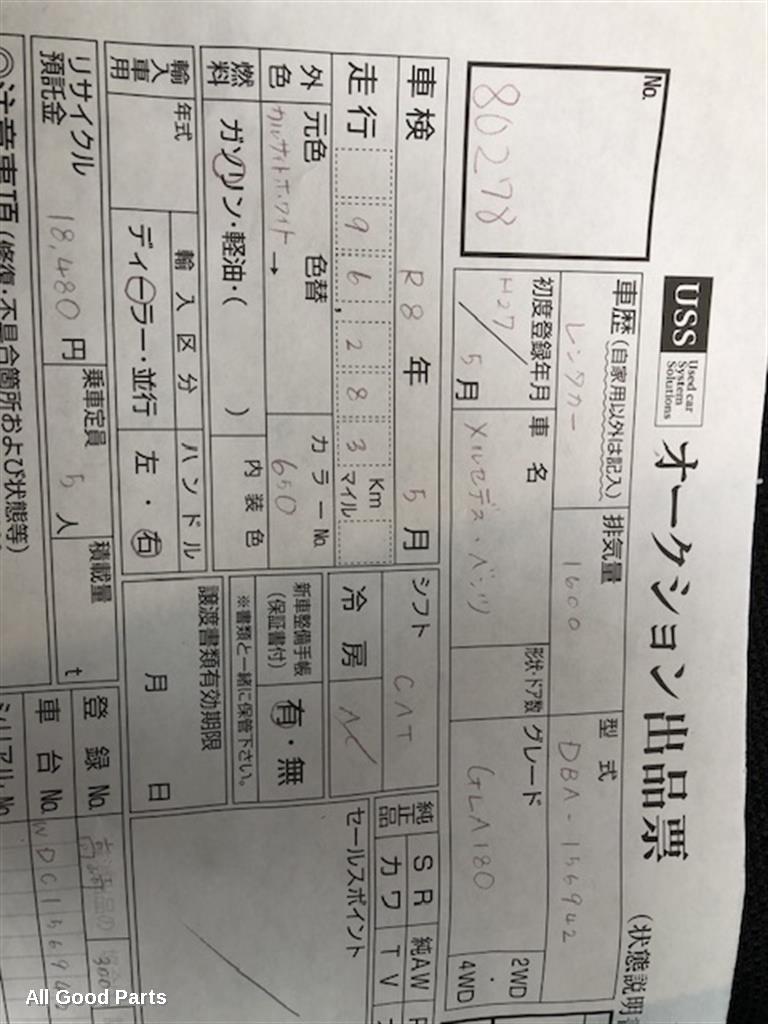 USS Used car System Solutions オークション出品票 (状態説明
No. 80278
車歴(自家用以外は記入) レンタカー
排気量 1600
型式 DBA-156942
初度登録年月 H27/5月
車名 メルセデス・ベンツ
形状・ドア数
グレード GLA180
2WD・4WD
車検 R8年 5月
シフト CAT
純正品 SR 純AW
カワ TV
走行 96,283 Km マイル
冷房 AC
セールスポイント
外色 元色 色替 カラーNo.
カルサイトホワイト → 650
新車整備手帳(保証書付) 有・無
※書類と一緒に保管下さい。
燃料 ガソリン・軽油・( )
内装色
譲渡書類有効期限
月 日
輸入車用 年式 輸入区分 ハンドル
ディーラー・並行 左・右
リサイクル預託金 18,480円
乗車定員 5人
積載量 t
登録No.
車台No. WDC15694
シリアルNo.
◎注意事項(修復・不具合箇所および状態等)
All Good Parts